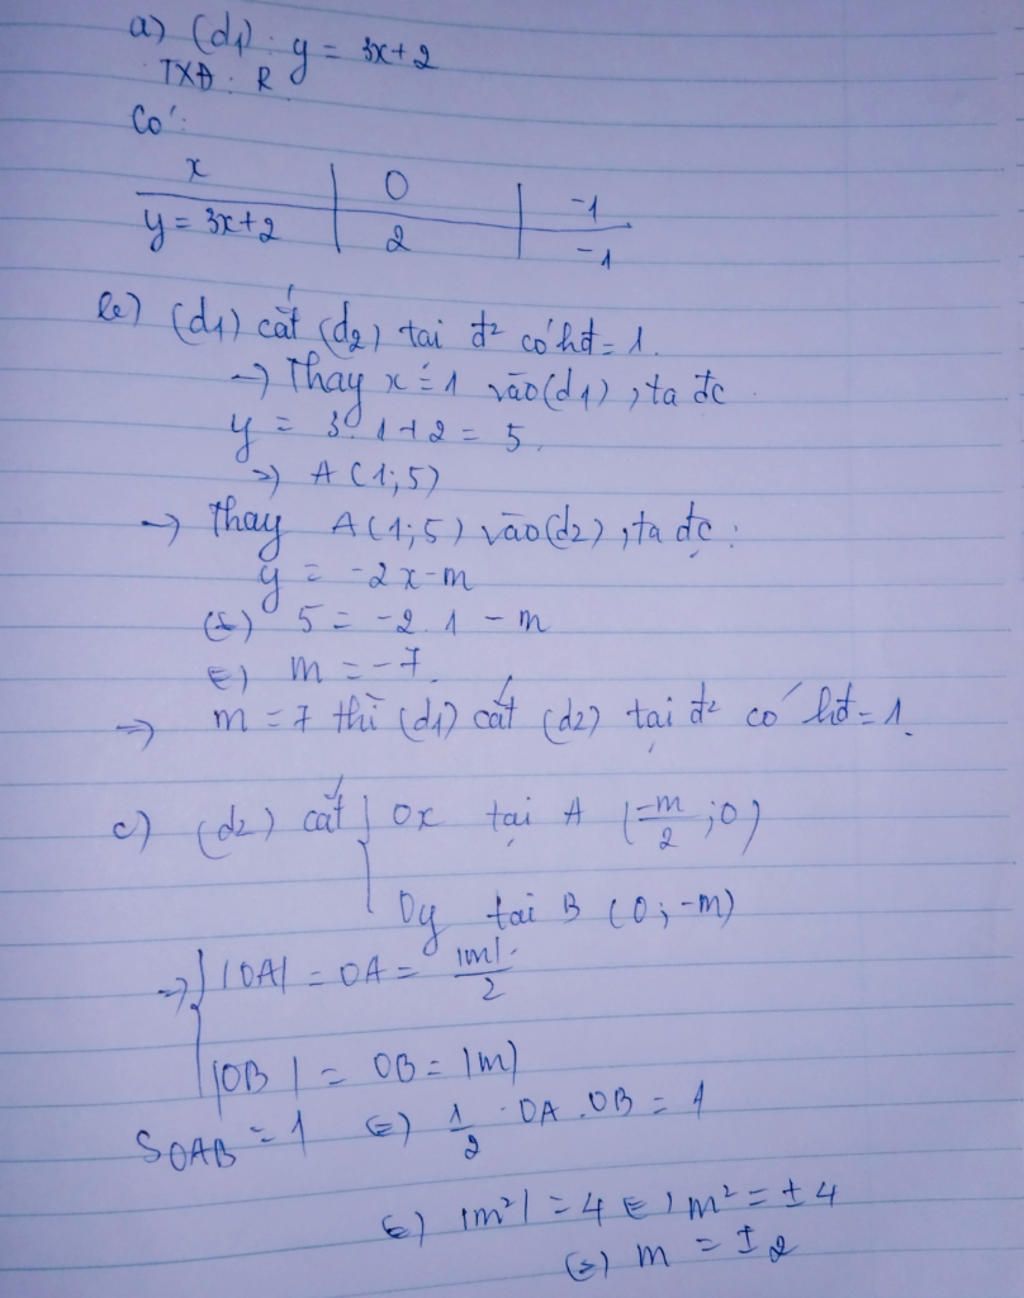 a) (d1): y = 3x+2
TXĐ: R
Có:
x | 0 | -1
y = 3x+2 | 2 | -1
b) (d1) cắt (d2) tai đ² có hđ = 1.
→ Thay x = 1 vào (d1), ta đc
y = 3.1+2 = 5
⇒ A (1;5)
→ Thay A(1;5) vào (d2), ta đc:
y = -2x-m
⇔ 5 = -2.1 - m
⇔ m = -7.
⇒ m = 7 thì (d1) cắt (d2) tại đ² có hđ = 1.
c) (d2) cắt { Ox tại A (-m/2; 0)
Oy tai B (0; -m)
⇒ { |OA| = OA = |m|/2
|OB| = OB = |m|
SOAB = 1 ⇔ 1/2 . OA . OB = 1
⇔ |m²| = 4 ⇔ m² = ±4
⇔ m = ±2